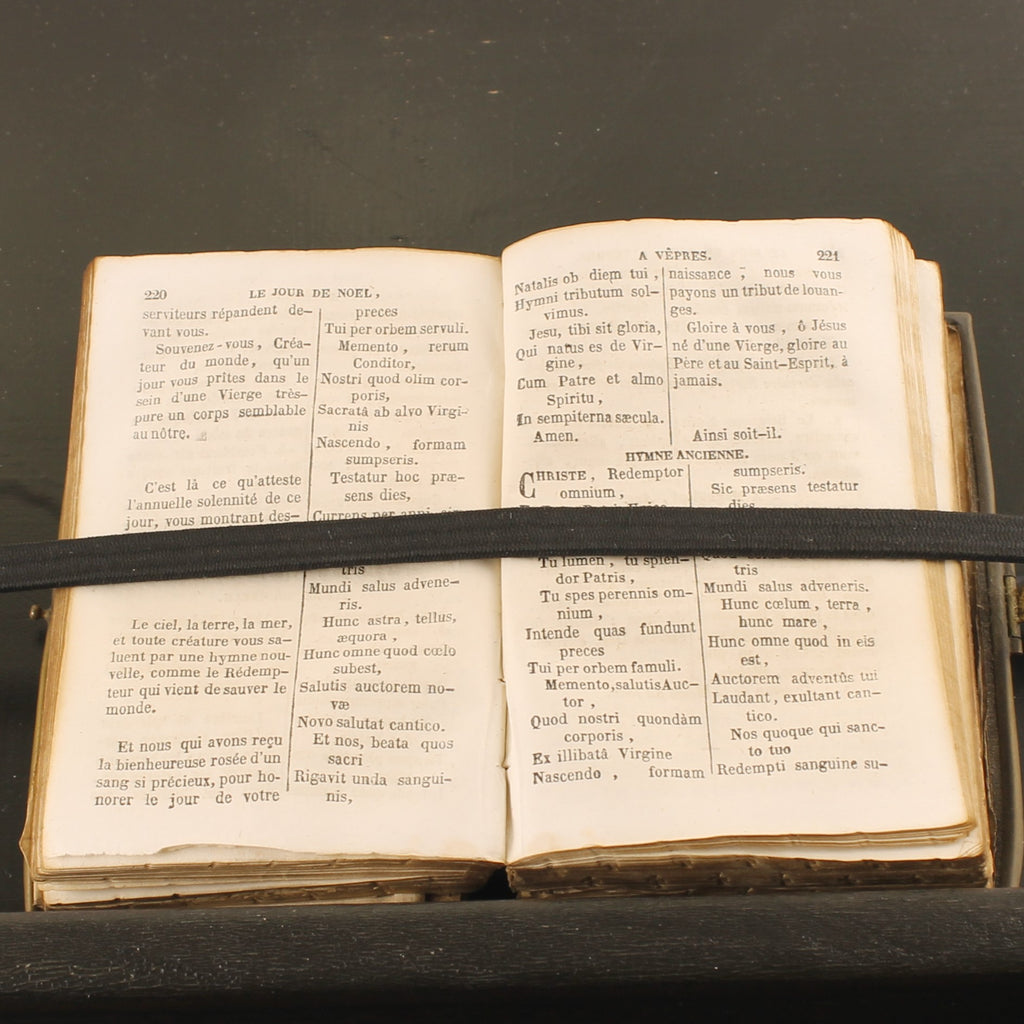 220 LE JOUR DE NOEL,
serviteurs répandent de-
vant vous.
Souvenez-vous, Créa-
teur du monde, qu'un
jour vous prîtes dans le
sein d'une Vierge très-
pure un corps semblable
au nôtre.
C'est là ce qu'atteste
l'annuelle solennité de ce
jour, vous montrant des-
Le ciel, la terre, la mer,
et toute créature vous sa-
luent par une hymne nou-
velle, comme le Rédemp-
teur qui vient de sauver le
monde.
Et nous qui avons reçu
la bienheureuse rosée d'un
sang si précieux, pour ho-
norer le jour de votre
preces
Tui per orbem servuli.
Memento, rerum
Conditor,
Nostri quod olim cor-
poris,
Sacratâ ab alvo Virgi-
nis
Nascendo, formam
sumpseris.
Testatur hoc præ-
sens dies,
Currens per anni
tris
Mundi salus advene-
ris.
Hunc astra, tellus,
æquora,
Hunc omne quod cœlo
subest,
Salutis auctorem no-
væ
Novo salutat cantico.
Et nos, beata quos
sacri
Rigavit unda sangui-
nis,
A VÊPRES. 221
Natalis ob diem tui,
Hymni tributum sol-
vimus.
Jesu, tibi sit gloria,
Qui natus es de Vir-
gine,
Cum Patre et almo
Spiritu,
In sempiterna sæcula.
Amen.
naissance, nous vous
payons un tribut de louan-
ges.
Gloire à vous, ô Jésus
né d'une Vierge, gloire au
Père et au Saint-Esprit, à
jamais.
Ainsi soit-il.
HYMNE ANCIENNE.
CHRISTE, Redemptor
omnium,
Tu lumen, tu splen-
dor Patris,
Tu spes perennis om-
nium,
Intende quas fundunt
preces
Tui per orbem famuli.
Memento, salutis Auc-
tor,
Quod nostri quondàm
corporis,
Ex illibatâ Virgine
Nascendo, formam
sumpseris.
Sic præsens testatur
dies
tris
Mundi salus adveneris.
Hunc cœlum, terra,
hunc mare,
Hunc omne quod in eis
est,
Auctorem adventûs tui
Laudant, exultant can-
tico.
Nos quoque qui sanc-
to tuo
Redempti sanguine su-